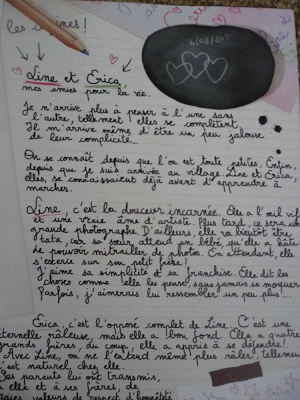 les copines !
6/08/20
Line et Erica,
mes amies pour la vie.
Je n'arrive plus à penser à l'une sans
l'autre, tellement elles se complètent.
Il m'arrive même d'être un peu jalouse
de leur complicité...
On se connaît depuis que l'on est toute petites. Enfin,
depuis que je suis arrivée au village. Line et Erica,
elles, se connaissaient déjà avant d'apprendre à
marcher.
Line, c'est la douceur incarnée. Elle a l'œil vif
et une vraie âme d'artiste. Plus tard, ce sera une
grande photographe. D'ailleurs, elle va bientôt être
tata, car sa sœur attend un bébé, qu'elle a hâte
de pouvoir mitrailler de photos. En attendant, elle
s'exerce sur son petit frère !
J'aime sa simplicité et sa franchise. Elle dit les
choses comme elle les pense, sans jamais se moquer.
Parfois, j'aimerais lui ressembler un peu plus...
Erica, c'est l'opposé complet de Line. C'est une
éternelle râleuse, mais elle a bon fond. Elle a quatre
grands frères, du coup, elle a appris à se défendre !
Avec Line, on ne l'entend même plus râler, tellement
c'est naturel chez elle.
Ses parents lui ont transmis,
à elle et à ses frères, de
vraies valeurs de respect, d'honnêteté